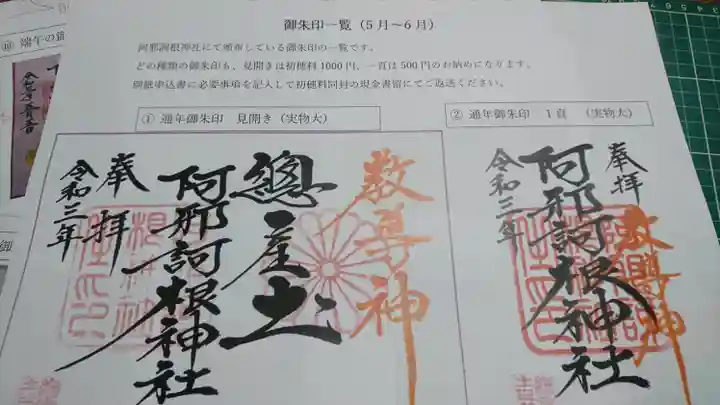 御朱印一覧（5月～6月）
阿邪訶根神社にて頒布している御朱印の一覧です。
どの種類の御朱印も、見開きは初穂料1000円、一頁は500円のお納めになります。
御朱印申込書に必要事項を記入して初穂料同封の現金書留にてご返送ください。
① 通年御朱印 見開き（実物大）
敎導神
總産土
阿邪訶根神社
奉拝
令和三年
② 通年御朱印 1頁 （実物大）
奉拝
敎導神
阿邪訶根神社
令和三年
⑩ 端午の